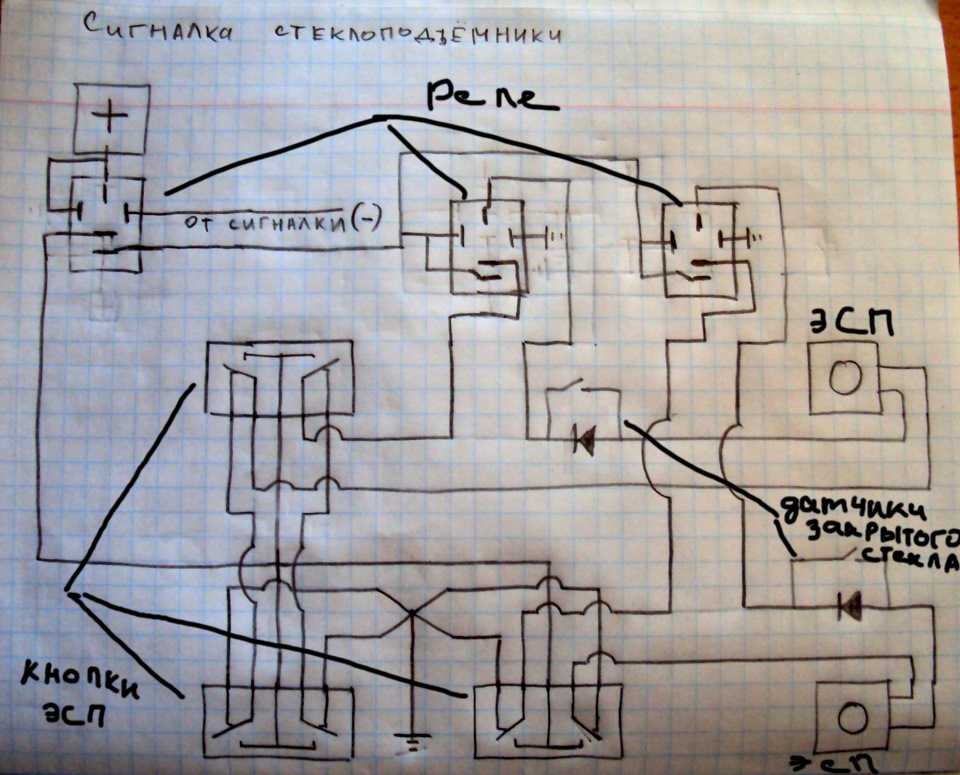 Сигналка стеклоподъёмники
+
Реле
от сигналки (-)
ЭСП
датчики
закрытого
стекла
кнопки
ЭСП
ЭСП